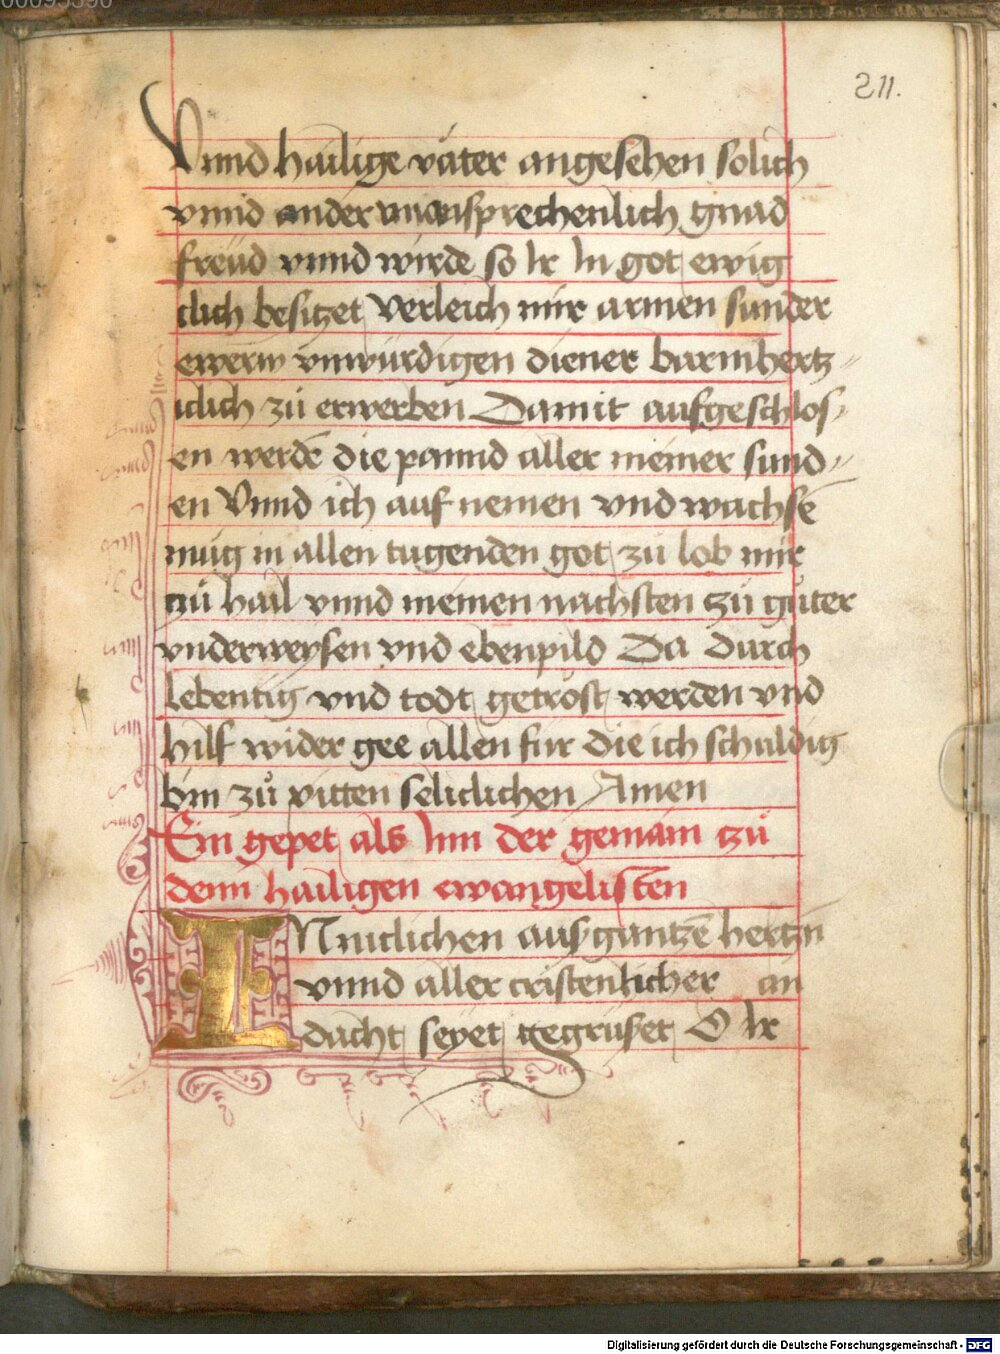 211.
Vnnd hailige väter angesehen solich
vnnd ander vnausprechenlich gnad
freüd vnnd wirde so Ir In got ewig
clich besitzet Verleich mir armen sunder
ewerm vnwürdigen diener barmhertz
iclich zü erwerben Damit aufgeschlos
en werdē die pannd aller meiner sund
en Vnnd ich auf nemen vnd wachsē
müg in allen tugenden got zü lob mir
zü hail vnnd meinen nachsten zü güter
vnderweysen vnd ebenpild Da durch
lebentig vnd todt getröst werden vnd
hilf wider gee allen fur die ich schuldig
bin zů pitten seliclichen Amen
Ein gepet als Inn der gemain zů
denn hailigen ewangelisten
INniclichen auß gantzē hertzn
vnnd aller cristenlicher an
dacht seyet gegrüßet O Ir
Digitalisierung gefördert durch die Deutsche Forschungsgemeinschaft - DFG